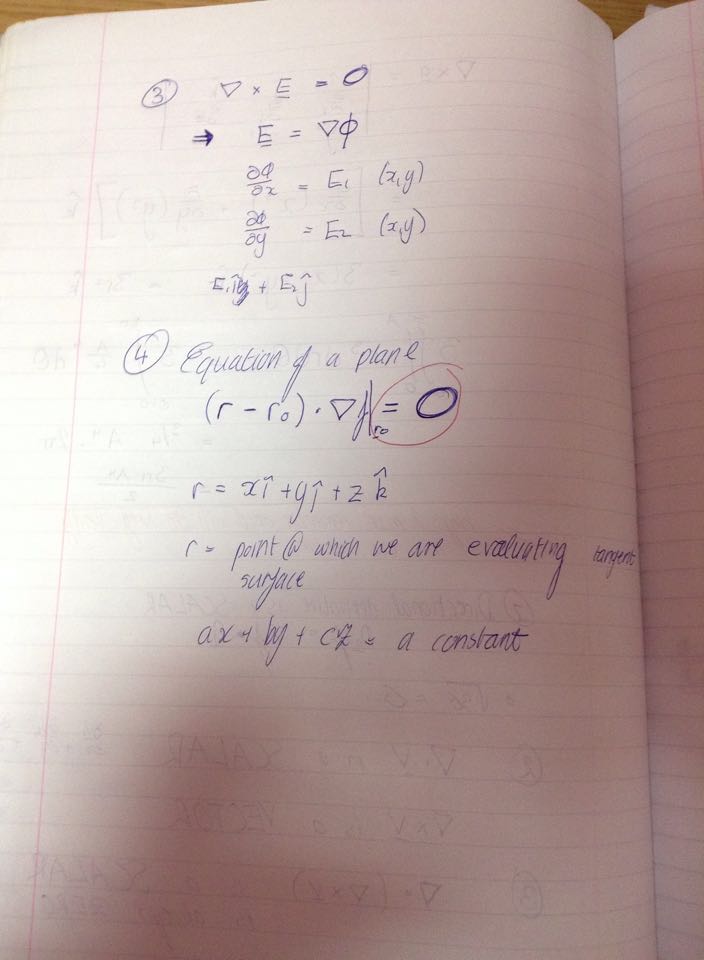 ③ ∇ × E = 0
⇒ E = ∇ϕ
∂ϕ/∂x = E₁ (x,y)
∂ϕ/∂y = E₂ (x,y)
E₁î + E₂ĵ
④ Equation of a plane
(r - r₀) · ∇f|r₀ = 0
r = xî + yĵ + zk̂
r = point @ which we are evaluating tangent
surface
ax + by + cz = a constant